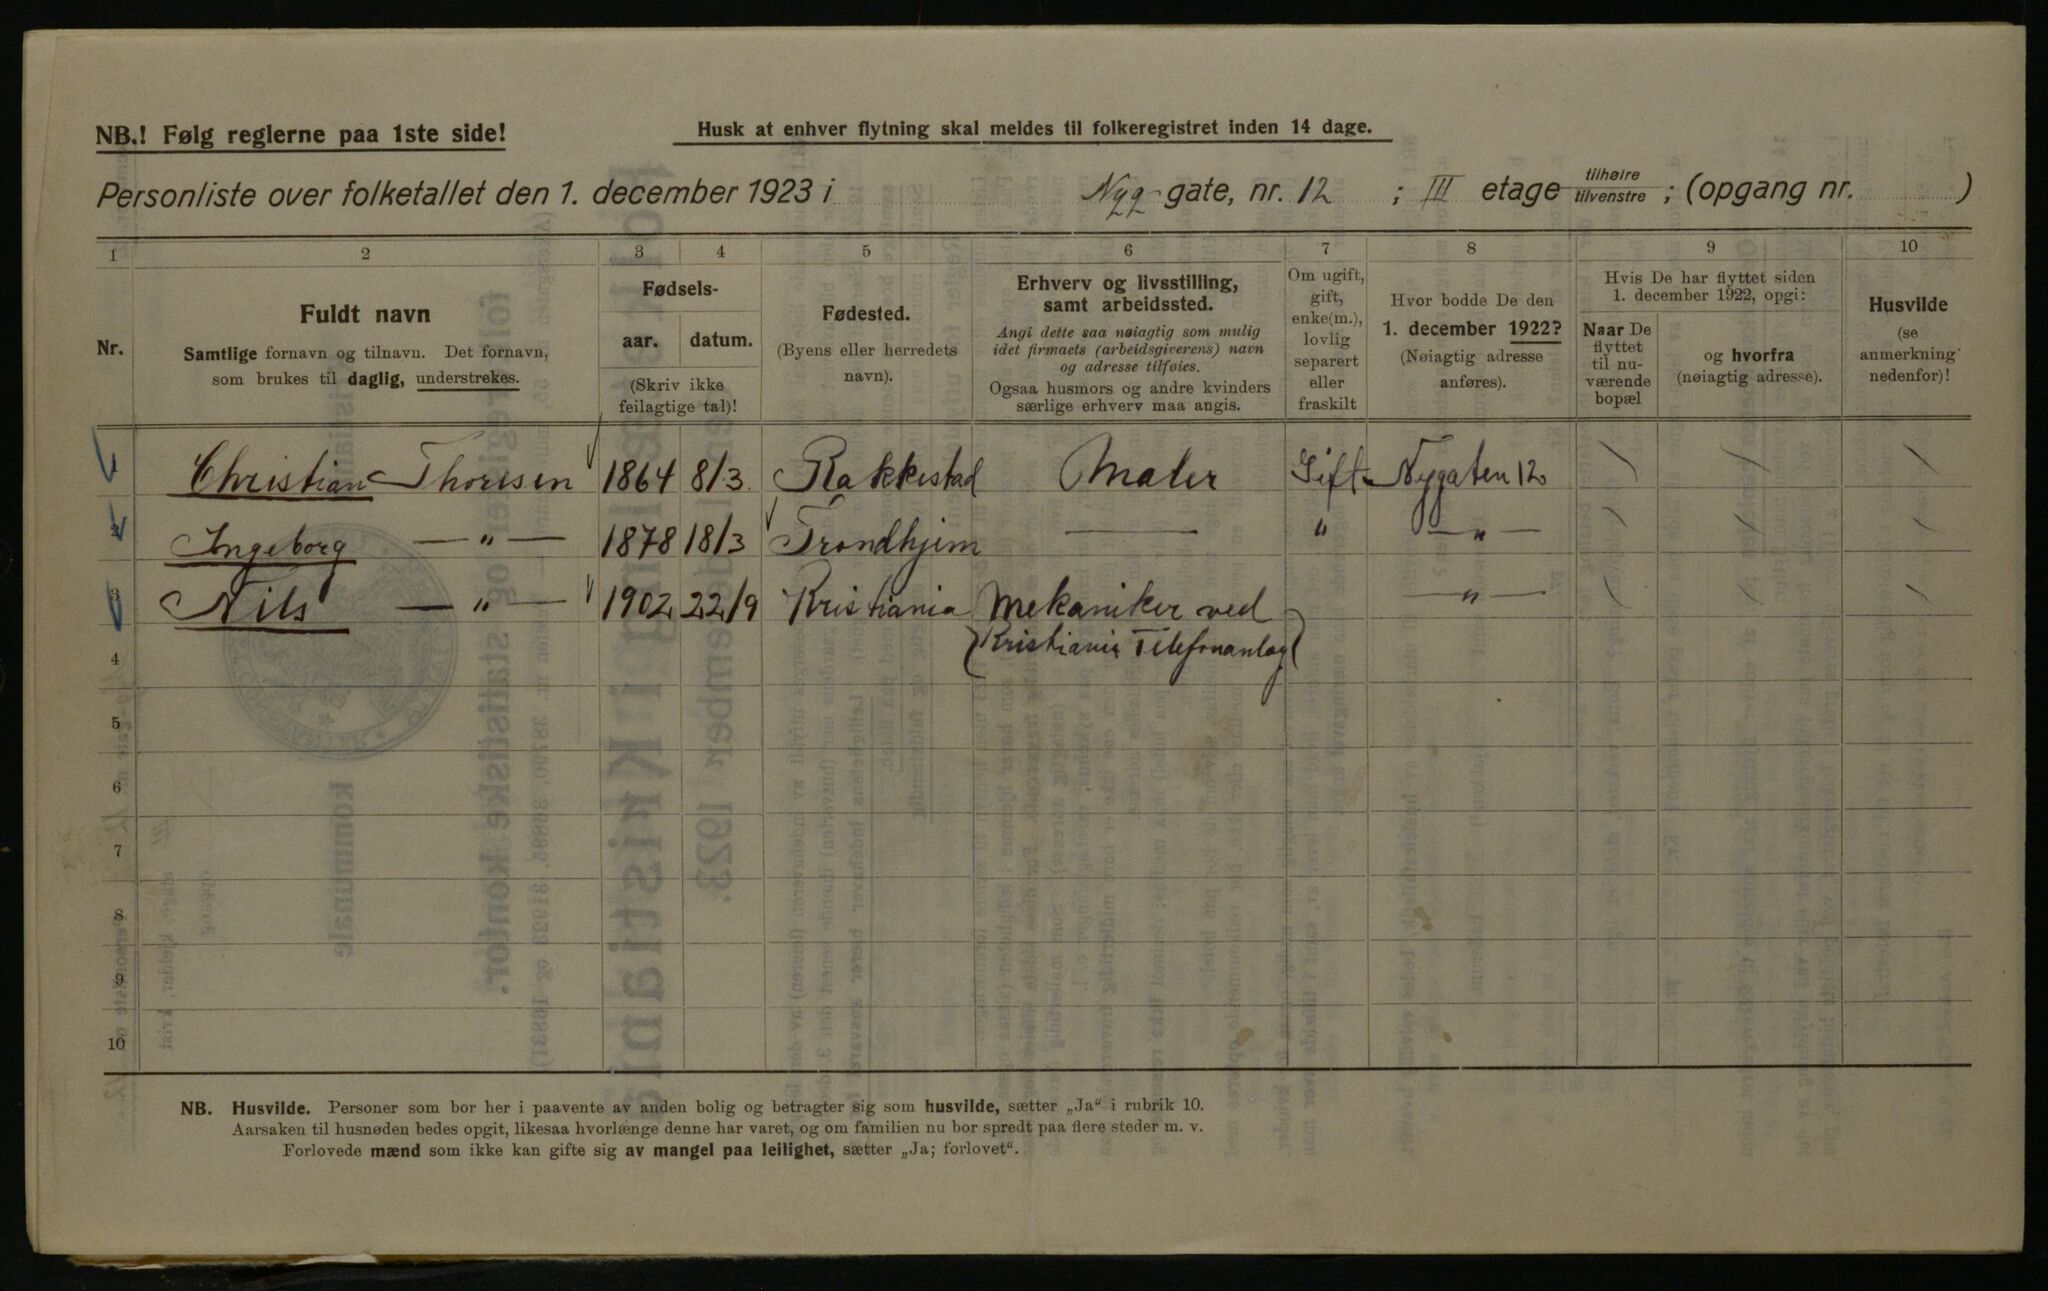 NB.! Følg reglerne paa 1ste side!
Husk at enhver flytning skal meldes til folkeregistret inden 14 dage.
Personliste over folketallet den 1. december 1923 i Nyggate, nr. 12 ; III etage tilhøire tilvenstre ; (opgang nr. )
1 2 3 4 5 6 7 8 9 10
Nr.
Fuldt navn
Samtlige fornavn og tilnavn. Det fornavn,
som brukes til daglig, understrekes.
Fødsels-
aar. datum.
(Skriv ikke
feilagtige tal)!
Fødested.
(Byens eller herredets
navn).
Erhverv og livsstilling,
samt arbeidssted.
Angi dette saa nøiagtig som mulig
idet firmaets (arbeidsgiverens) navn
og adresse tilføies.
Ogsaa husmors og andre kvinders
særlige erhverv maa angis.
Om ugift,
gift,
enke(m.),
lovlig
separert
eller
fraskilt
Hvor bodde De den
1. december 1922?
(Nøiagtig adresse
anføres).
Hvis De har flyttet siden
1. december 1922, opgi:
Naar De
flyttet
til nu-
værende
bopæl
og hvorfra
(nøiagtig adresse).
Husvilde
(se
anmerkning
nedenfor)!
1 Christian Thoresen 1864 8/3 Rakkestad Maler Gift Nygaten 12 / / /
2 Ingeborg — " — 1878 18/3 Trondhjem — " — " — / / /
3 Nils — " — 1902 22/9 Kristiania Mekaniker ved — " — / / /
(Kristiania Telefonanlæg)
4
5
6
7
8
9
10
NB. Husvilde. Personer som bor her i paavente av anden bolig og betragter sig som husvilde, sætter „Ja“ i rubrik 10.
Aarsaken til husnøden bedes opgit, likesaa hvorlænge denne har varet, og om familien nu bor spredt paa flere steder m. v.
Forlovede mænd som ikke kan gifte sig av mangel paa leilighet, sætter „Ja; forlovet“.